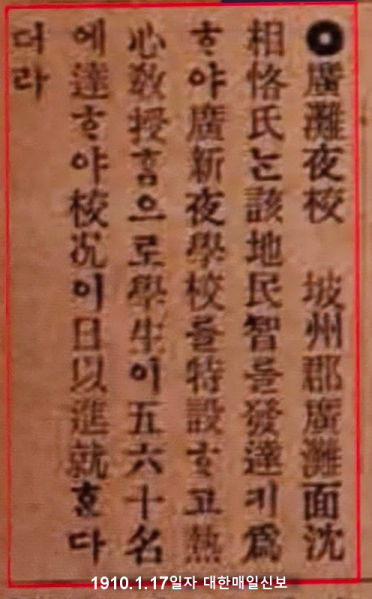 ●廣灘夜校 坡州郡廣灘面沈
相恪氏는該地民智를發達키爲
ᄒᆞ야廣新夜學校를特設ᄒᆞ고熱
心敎授홈으로學生이五六十名
에達ᄒᆞ야校况이日以進就ᄒᆞᆫ다
더라
1910.1.17일자 대한매일신보